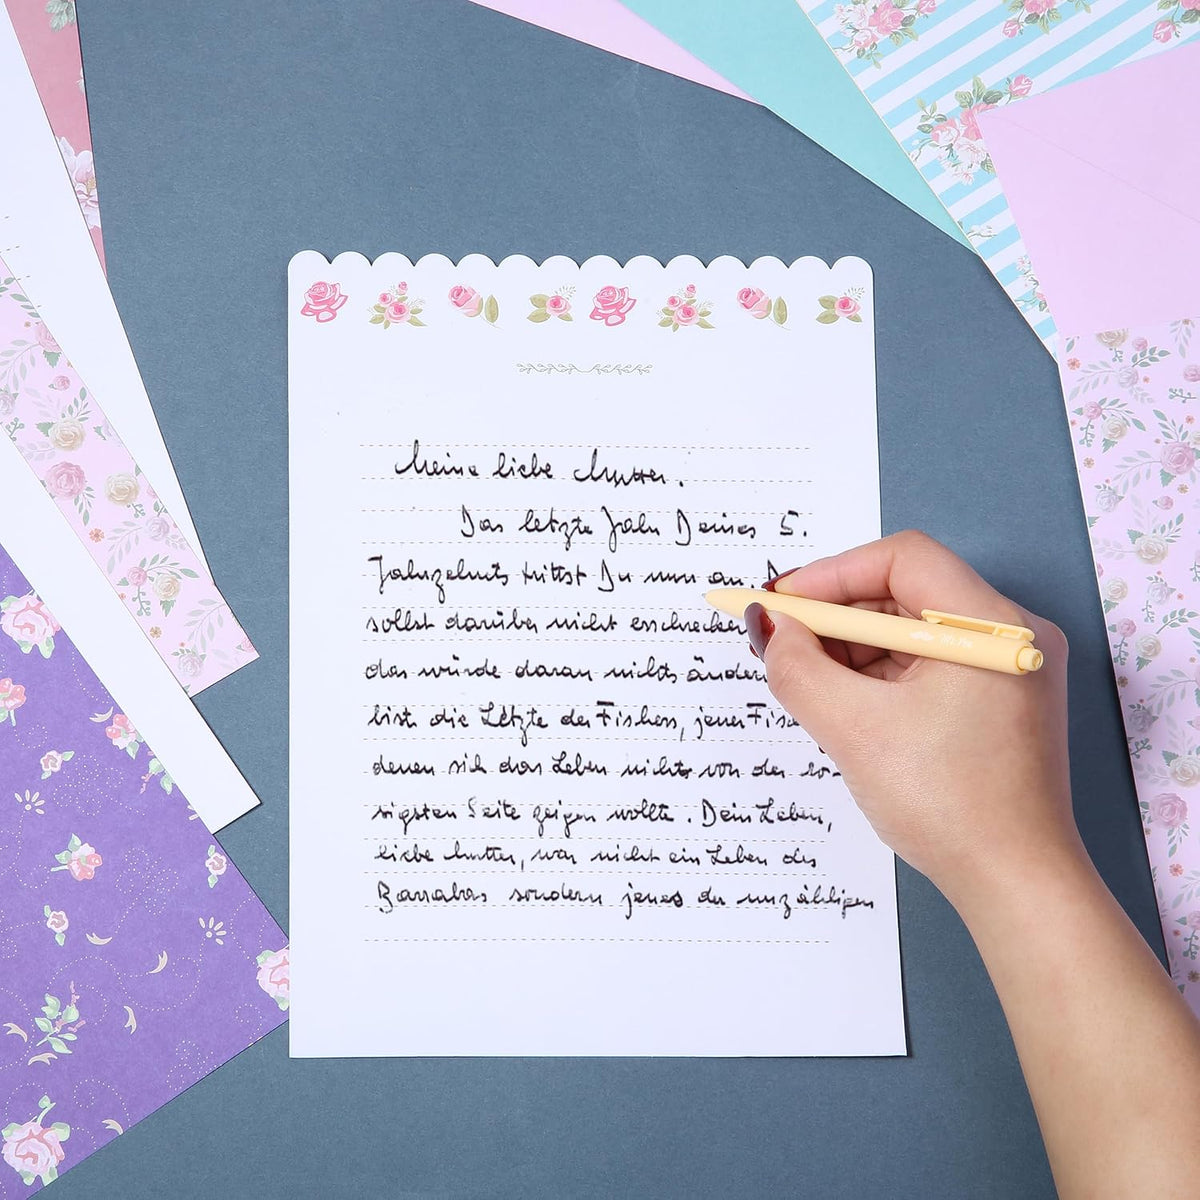 Meine liebe Mutter.
Das letzte Jahr Deines 5.
Jahrzehnts trittst Du nun an.
sollst darüber nicht erschrecken
das würde daran nichts ändern
bist die Letzte der Fischers, jener
denen sich das Leben nichts von der ro-
sigsten Seite zeigen wollte. Dein Leben,
liebe Mutter, war nicht ein Leben des
Barrabas sondern jenes der unzähligen
Mr. Pen